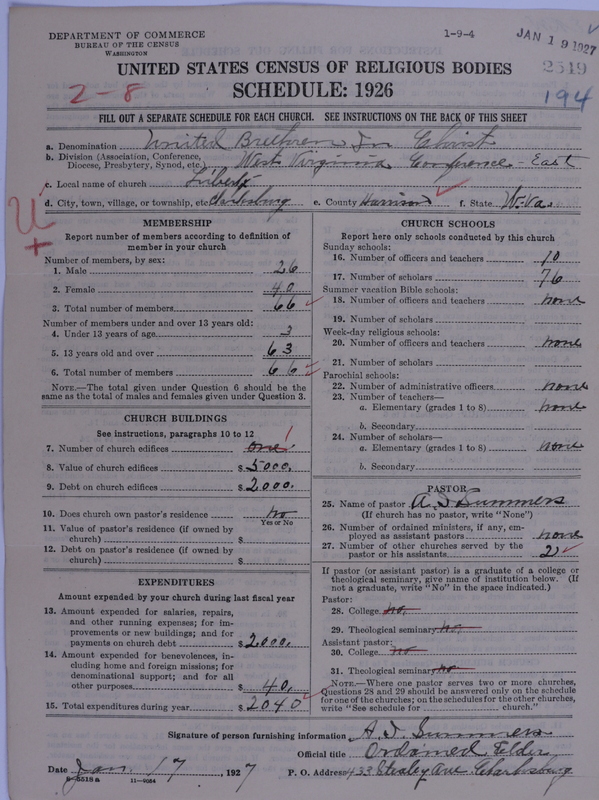 DEPARTMENT OF COMMERCE
BUREAU OF THE CENSUS
WASHINGTON
1-9-4
JAN 19 1927
2549
UNITED STATES CENSUS OF RELIGIOUS BODIES
2-8
SCHEDULE: 1926
194
FILL OUT A SEPARATE SCHEDULE FOR EACH CHURCH. SEE INSTRUCTIONS ON THE BACK OF THIS SHEET
a. Denomination United Brethren In Christ
b. Division (Association, Conference, Diocese, Presbytery, Synod, etc.) West Virginia Conference - East
c. Local name of church Liberty
d. City, town, village, or township, etc. Clarksburg e. County Harrison f. State W. Va.
U
+
MEMBERSHIP
Report number of members according to definition of
member in your church
Number of members, by sex:
1. Male 26
2. Female 40
3. Total number of members 66
Number of members under and over 13 years old:
4. Under 13 years of age 3
5. 13 years old and over 63
6. Total number of members 66
NOTE.—The total given under Question 6 should be the
same as the total of males and females given under Question 3.
CHURCH BUILDINGS
See instructions, paragraphs 10 to 12
7. Number of church edifices one 1
8. Value of church edifices $ 5000.
9. Debt on church edifices $ 2000.
10. Does church own pastor's residence No
Yes or No
11. Value of pastor's residence (if owned by
church) $
12. Debt on pastor's residence (if owned by
church) $
EXPENDITURES
Amount expended by your church during last fiscal year
13. Amount expended for salaries, repairs,
and other running expenses; for im-
provements or new buildings; and for
payments on church debt $ 2000.
14. Amount expended for benevolences, in-
cluding home and foreign missions; for
denominational support; and for all
other purposes $ 40.
15. Total expenditures during year $ 2040
CHURCH SCHOOLS
Report here only schools conducted by this church
Sunday schools:
16. Number of officers and teachers 10
17. Number of scholars 76
Summer vacation Bible schools:
18. Number of officers and teachers none
19. Number of scholars
Week-day religious schools:
20. Number of officers and teachers none
21. Number of scholars
Parochial schools:
22. Number of administrative officers none
23. Number of teachers—
a. Elementary (grades 1 to 8) none
b. Secondary
24. Number of scholars—
a. Elementary (grades 1 to 8) none
b. Secondary
PASTOR
25. Name of pastor A S Summers
(If church has no pastor, write "None")
26. Number of ordained ministers, if any, em-
ployed as assistant pastors none
27. Number of other churches served by the
pastor or his assistants 2
If pastor (or assistant pastor) is a graduate of a college or
theological seminary, give name of institution below. (If
not a graduate, write "No" in the space indicated.)
Pastor:
28. College no.
29. Theological seminary no.
Assistant pastor:
30. College no
31. Theological seminary no
NOTE.—Where one pastor serves two or more churches,
Questions 28 and 29 should be answered only on the schedule
for one of the churches; on the schedules for the other churches,
write "See schedule for church."
Signature of person furnishing information A. S. Summers
Official title Ordained Elder
Date Jan. 17, 1927 P. O. Address 433 Stealey Ave Clarksburg
8-5518a 11-9054